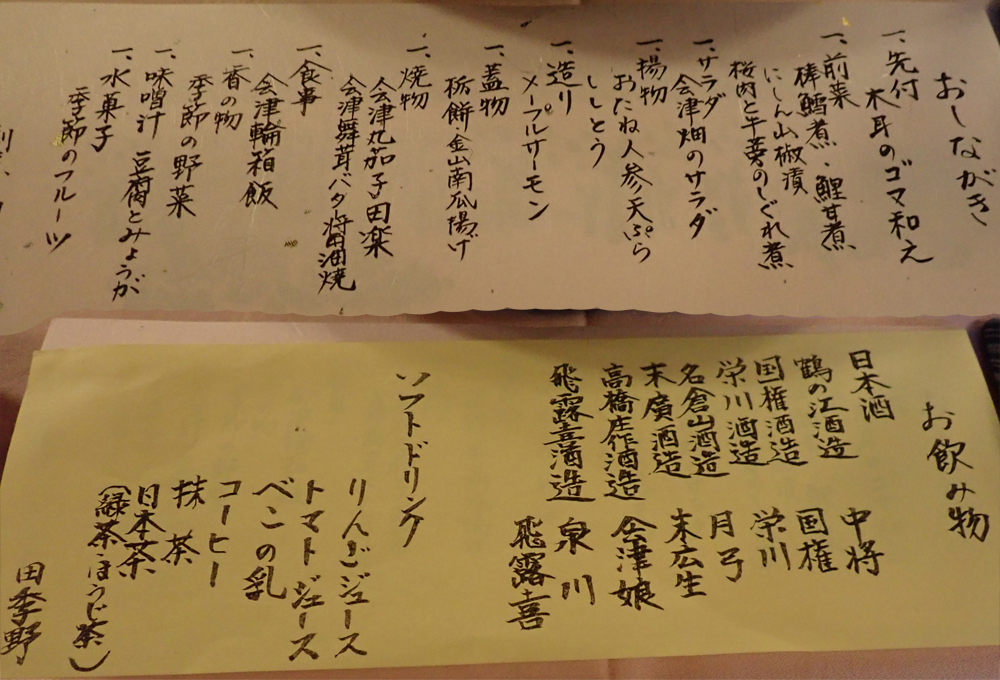 おしながき
一、先付
木耳のゴマ和え
一、前菜
棒鱈煮・鯉甘煮
にしん山椒漬
桜肉と牛蒡のしぐれ煮
一、サラダ
会津畑のサラダ
一、揚物
おたね人参天ぷら
ししとう
一、造り
メープルサーモン
一、蓋物
栃餅・金山南瓜揚げ
一、焼物
会津丸茄子田楽
会津舞茸バタ醤油焼
一、食事
会津輪箱飯
一、香の物
季節の野菜
一、味噌汁 豆腐とみょうが
一、水菓子
季節のフルーツ
お飲み物
日本酒
鶴の江酒造 中将
国権酒造 国権
栄川酒造 栄川
名倉山酒造 月弓
末廣酒造 末広生
高橋庄作酒造 会津娘
飛露喜酒造 泉川
飛露喜
ソフトドリンク
りんごジュース
トマトジュース
べこの乳
コーヒー
抹茶
日本茶
(緑茶・ほうじ茶)
田季野